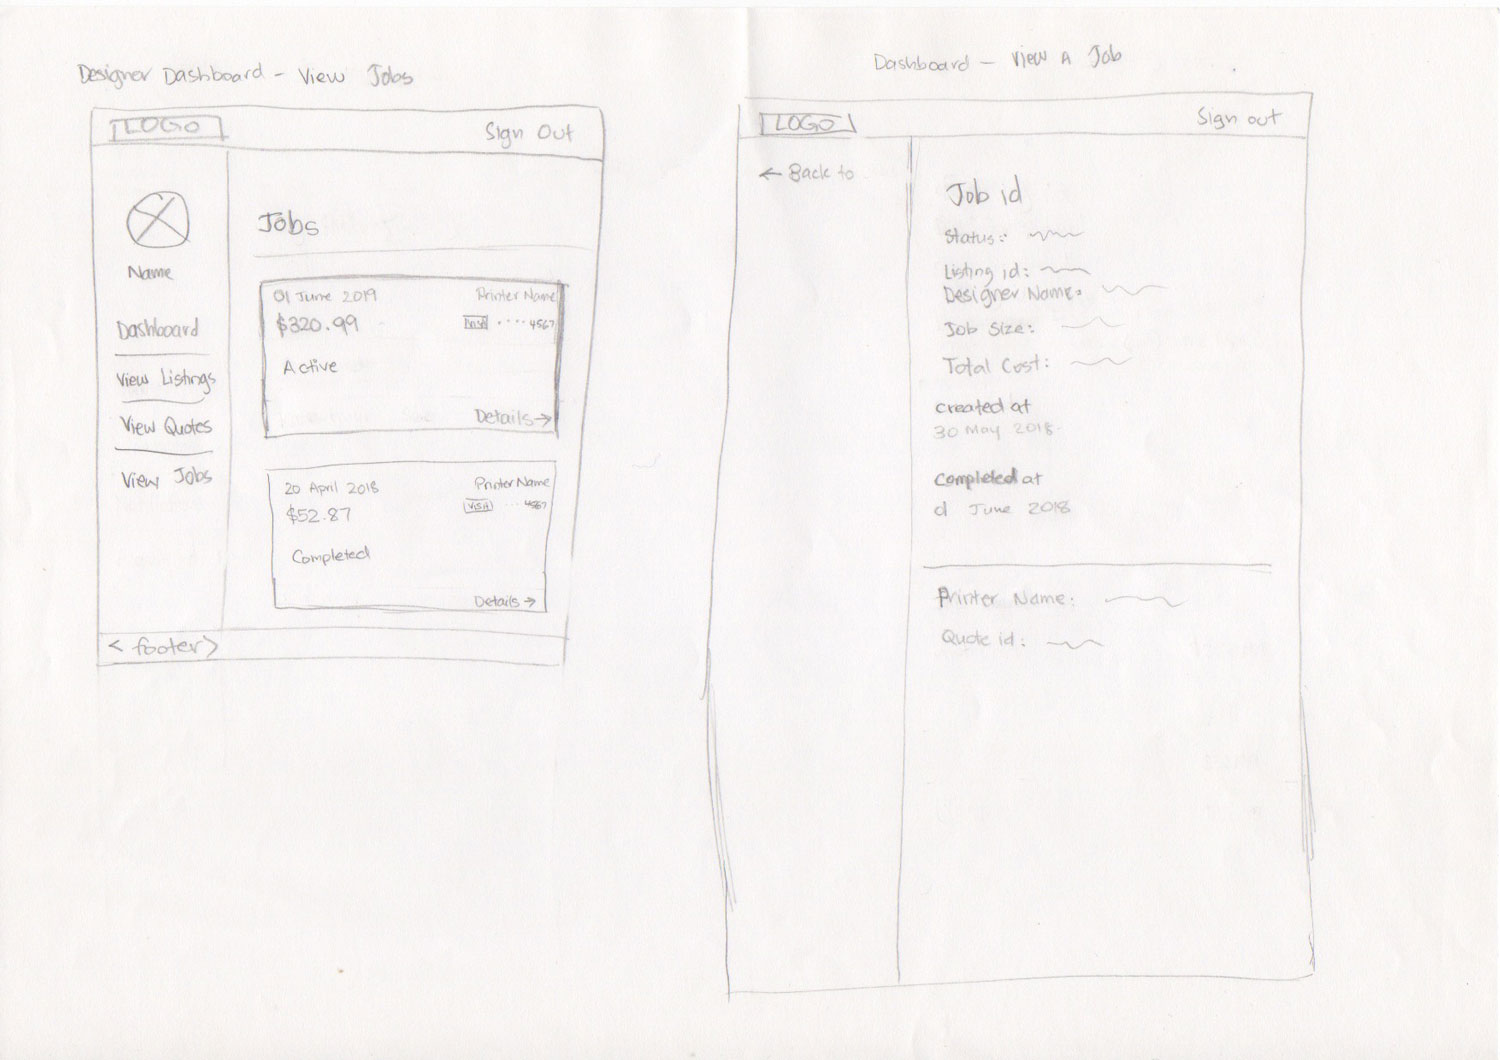 Designer Dashboard - View Jobs
LOGO
Sign Out
Name
Dashboard
View Listings
View Quotes
View Jobs
Jobs
01 June 2019
Printer Name
$320.99
VISA ···· 4567
Active
Details →
20 April 2018
Printer Name
$52.87
VISA ··· 4567
Completed
Details →
< footer >
Dashboard - View A Job
LOGO
Sign out
← Back to
Job id
Status:
Listing id:
Designer Name:
Job Size:
Total Cost:
created at
30 May 2018
Completed at
01 June 2018
Printer Name:
Quote id: